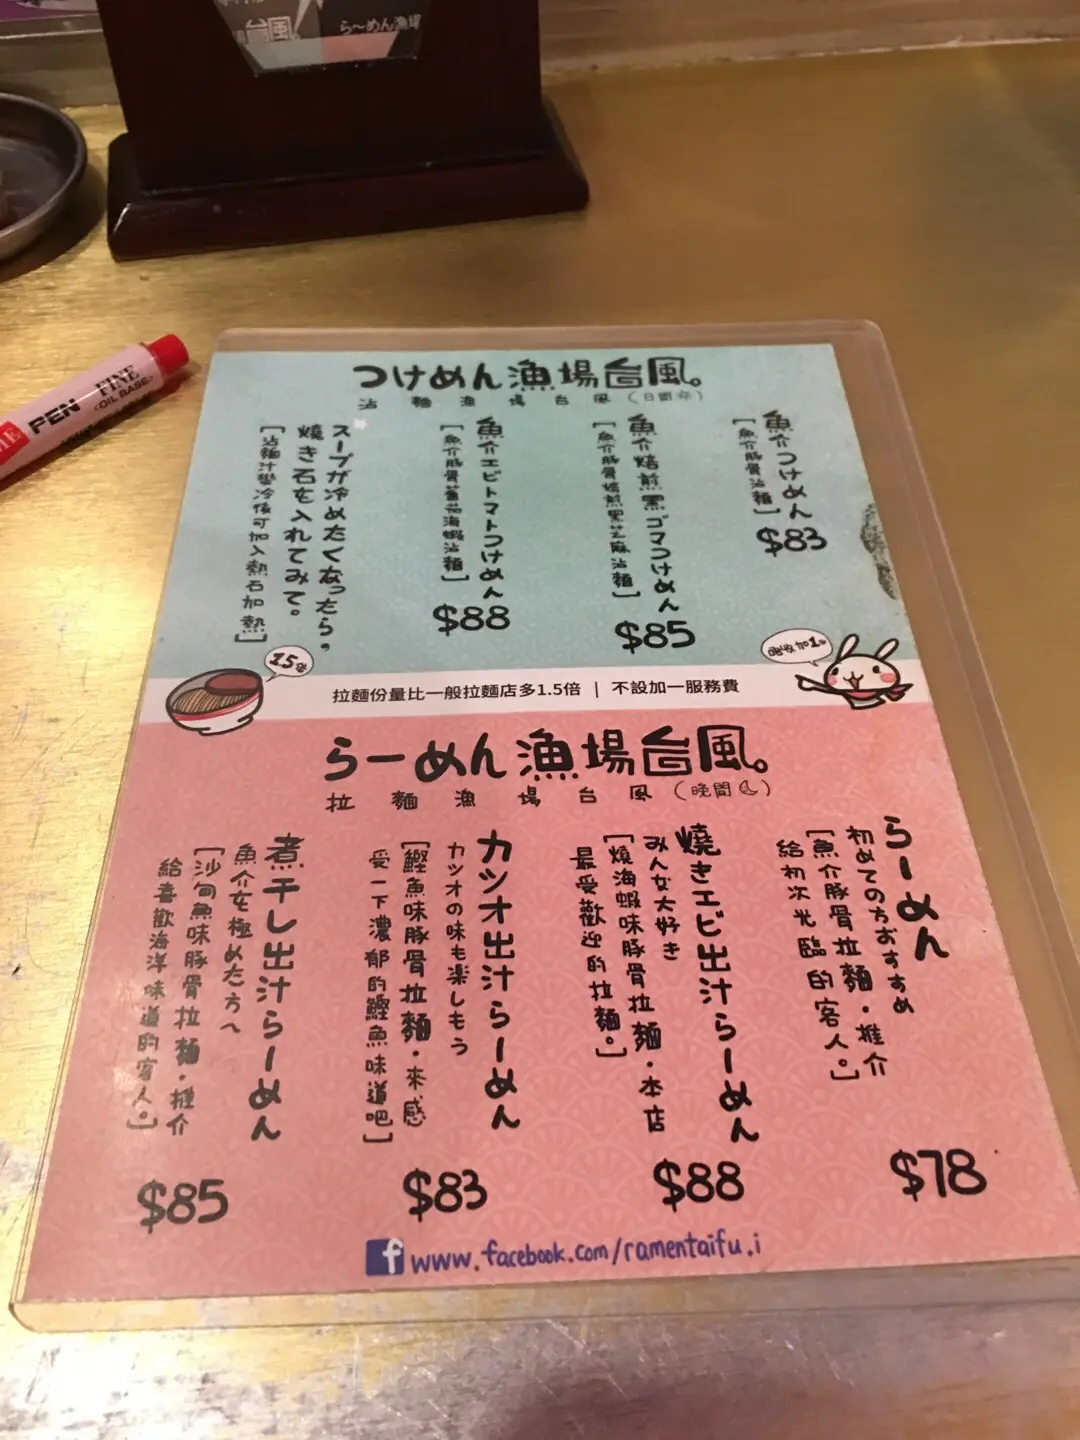 台風。
らーめん漁場
PEN FINE
<OIL BASE>
つけめん漁場台風。
沾麵漁場台風(日間)
魚介つけめん
[魚介豚骨沾麵]
$83
魚介焙煎黒ゴマつけめん
[魚介豚骨焙煎黑芝麻沾麵]
$85
魚介エビトマトつけめん
[魚介豚骨蕃茄海蝦沾麵]
$88
スープが冷めたくなったら。
焼き石を入れてみて。
[沾麵汁變冷後可加入熱石加熱]
1.5倍
拉麵份量比一般拉麵店多1.5倍 | 不設加一服務費
唔收加1。
らーめん漁場台風。
拉麵漁場台風(晚間)
らーめん
初めての方おすすめ
[魚介豚骨拉麵・推介
給初次光臨的客人。]
$78
焼きエビ出汁らーめん
みんな大好き
[燒海蝦味豚骨拉麵・本店
最受歡迎的拉麵。]
$88
カツオ出汁らーめん
カツオの味も楽しもう
[鰹魚味豚骨拉麵・來感
受一下濃郁的鰹魚味道吧]
$83
煮干し出汁らーめん
魚介を極めた方へ
[沙甸魚味豚骨拉麵・推介
給喜歡海洋味道的客人。]
$85
f www.facebook.com/ramentaifu.i